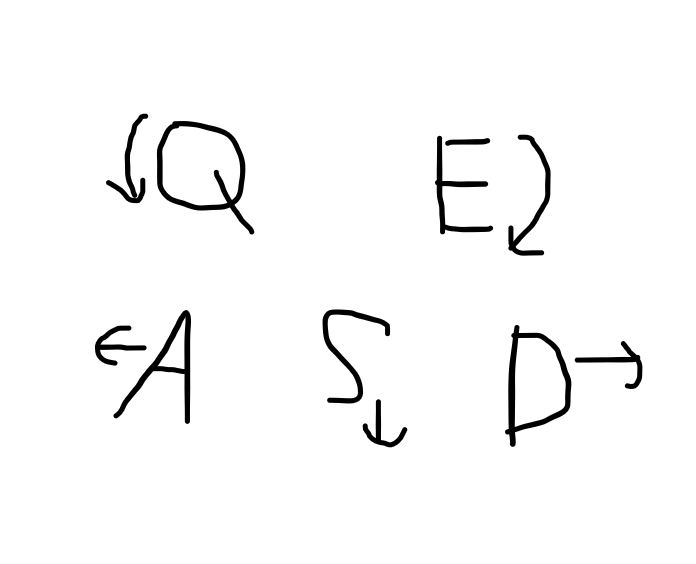 Q E
A S D